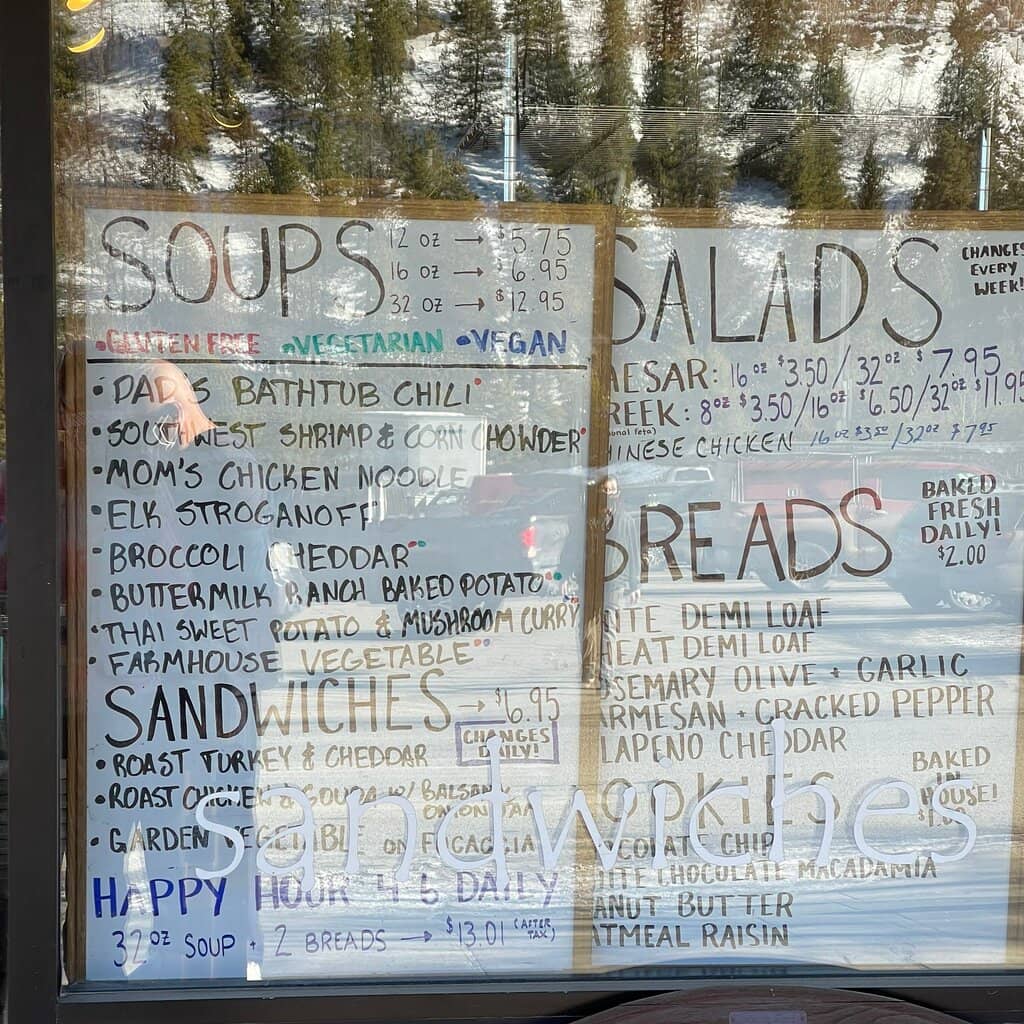 SOUPS
12 OZ → $5.75
16 OZ → $6.95
32 OZ → $12.95
•GLUTEN FREE •VEGETARIAN •VEGAN
•DAD'S BATHTUB CHILI
•SOUTHWEST SHRIMP & CORN CHOWDER
•MOM'S CHICKEN NOODLE
•ELK STROGANOFF
•BROCCOLI CHEDDAR
•BUTTERMILK RANCH BAKED POTATO
•THAI SWEET POTATO & MUSHROOM CURRY
•FARMHOUSE VEGETABLE
SANDWICHES → $6.95
CHANGES DAILY!
•ROAST TURKEY & CHEDDAR
•ROAST CHICKEN & GOUDA W/ BALSAMIC
ONION JAM
•GARDEN VEGETABLE ON FOCACCIA
HAPPY HOUR 4-6 DAILY
32OZ SOUP + 2 BREADS → $13.01 (AFTER TAX)
SALADS
CHANGES
EVERY
WEEK!
AESAR: 16OZ $3.50/32OZ $7.95
REEK: 8OZ $3.50/16OZ $6.50/32OZ $11.95
onal feta)
HINESE CHICKEN 16OZ $3.50/32OZ $7.95
BREADS
BAKED
FRESH
DAILY!
$2.00
ITE DEMI LOAF
HEAT DEMI LOAF
SEMARY OLIVE + GARLIC
ARMESAN + CRACKED PEPPER
LAPENO CHEDDAR
OOKIES
BAKED
IN
HOUSE!
OCOLATE CHIP
ITE CHOCOLATE MACADAMIA
ANUT BUTTER
ATMEAL RAISIN
sandwiches